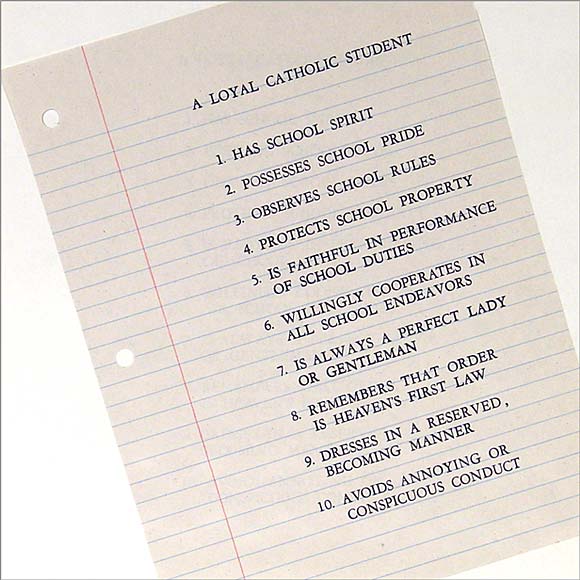 A LOYAL CATHOLIC STUDENT
1. HAS SCHOOL SPIRIT
2. POSSESSES SCHOOL PRIDE
3. OBSERVES SCHOOL RULES
4. PROTECTS SCHOOL PROPERTY
5. IS FAITHFUL IN PERFORMANCE
OF SCHOOL DUTIES
6. WILLINGLY COOPERATES IN
ALL SCHOOL ENDEAVORS
7. IS ALWAYS A PERFECT LADY
OR GENTLEMAN
8. REMEMBERS THAT ORDER
IS HEAVEN'S FIRST LAW
9. DRESSES IN A RESERVED,
BECOMING MANNER
10. AVOIDS ANNOYING OR
CONSPICUOUS CONDUCT